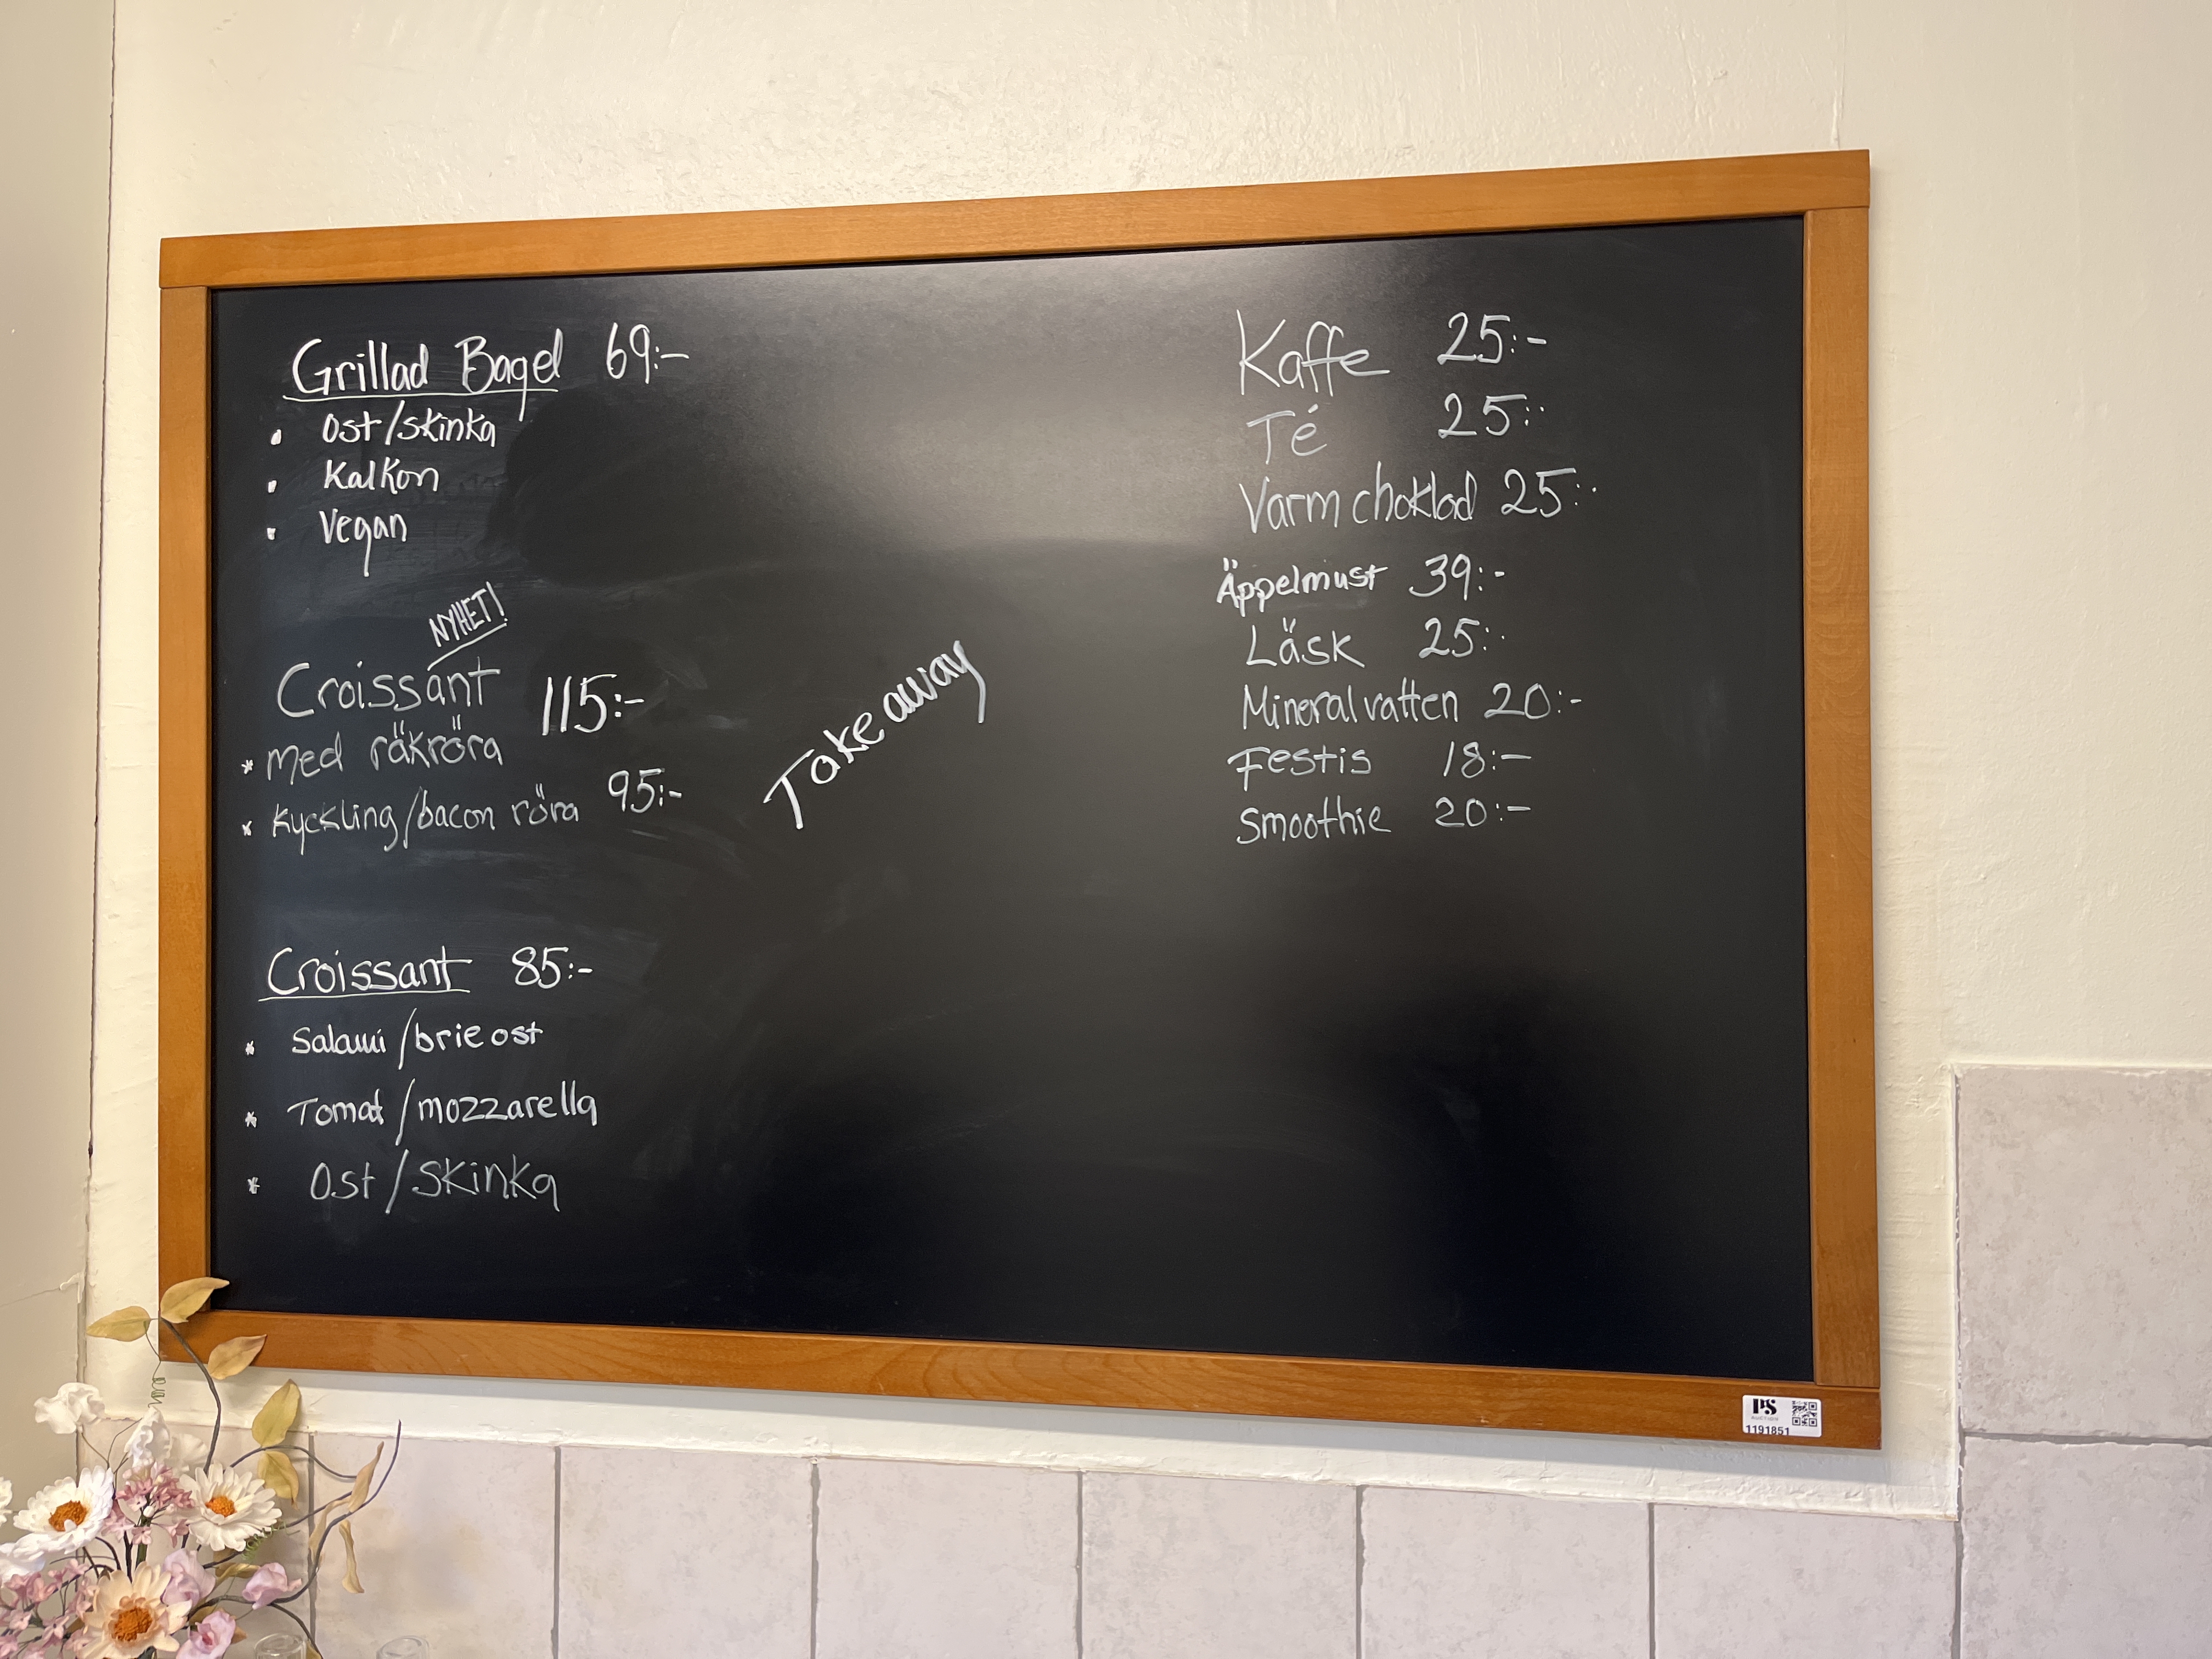 Grillad Bagel 69:-
• Ost/skinka
• Kalkon
• Vegan
NYHET!
Croissant 115:-
* med räkröra
* Kyckling/bacon röra 95:-
Croissant 85:-
* Salami/brie ost
* Tomat/mozzarella
* Ost/skinka
Take away
Kaffe 25:-
Té 25:-
Varm choklad 25:-
Äppelmust 39:-
Läsk 25:-
Mineralvatten 20:-
Festis 18:-
Smoothie 20:-
PS
1191851